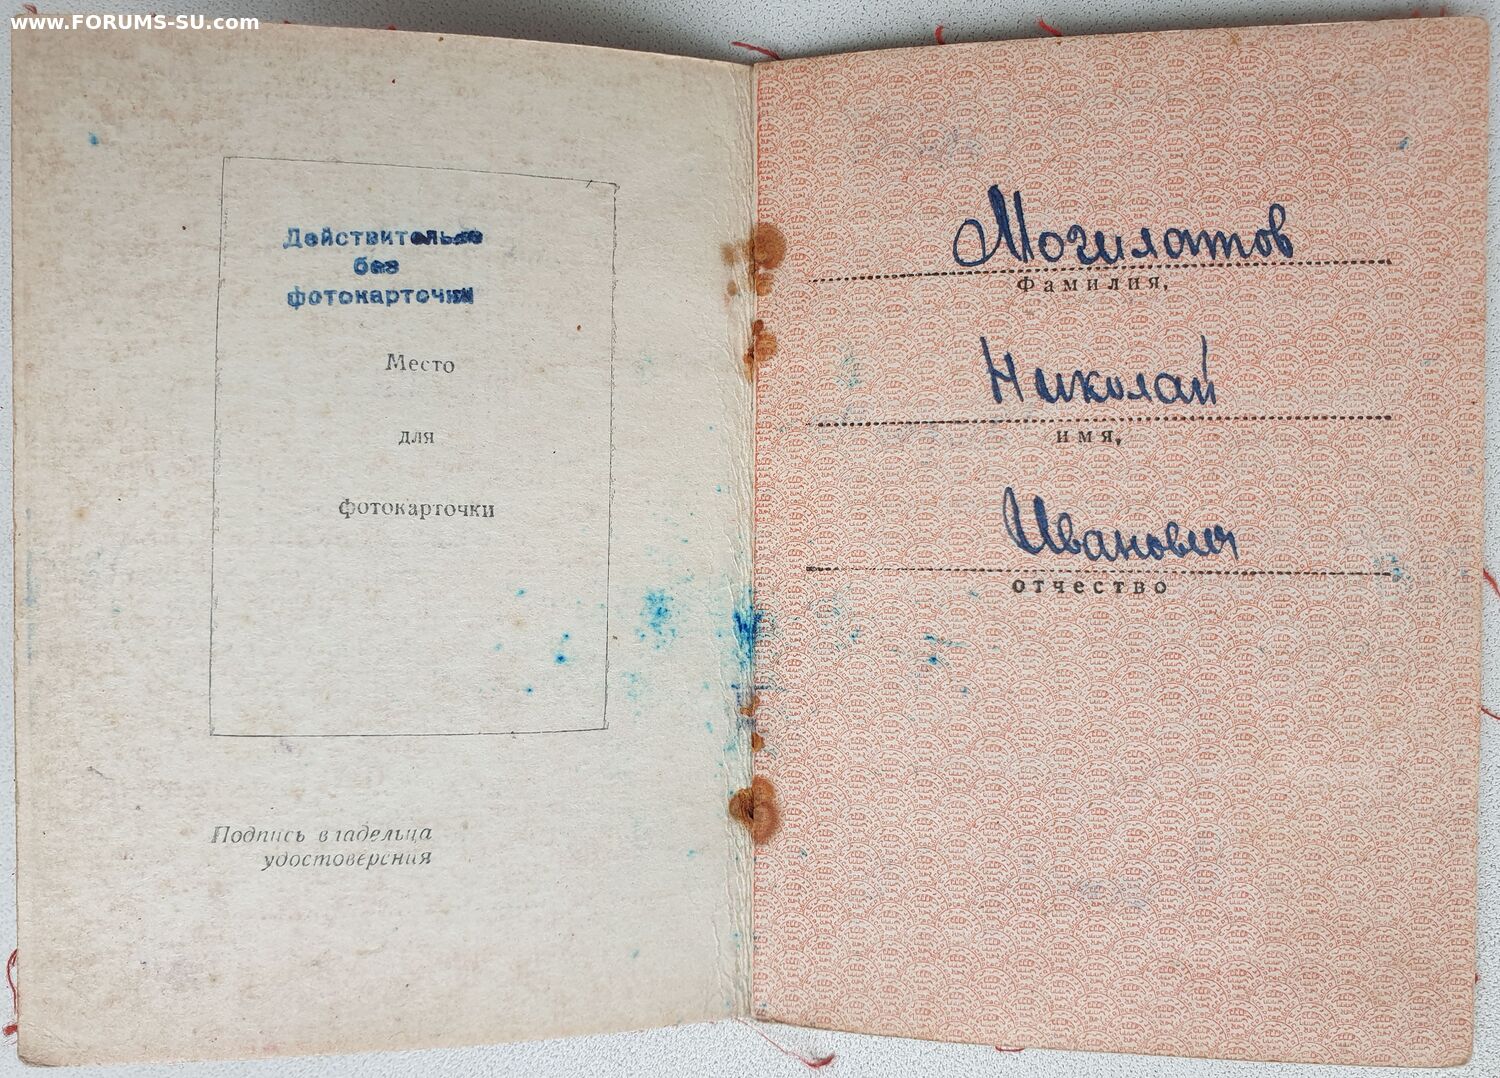 www.FORUMS-SU.com
Действительно
без
фотокарточки
Место
для
фотокарточки
Подпись владельца
удостоверения
Могилатов
Фамилия,
Николай
имя,
Иванович
отчество